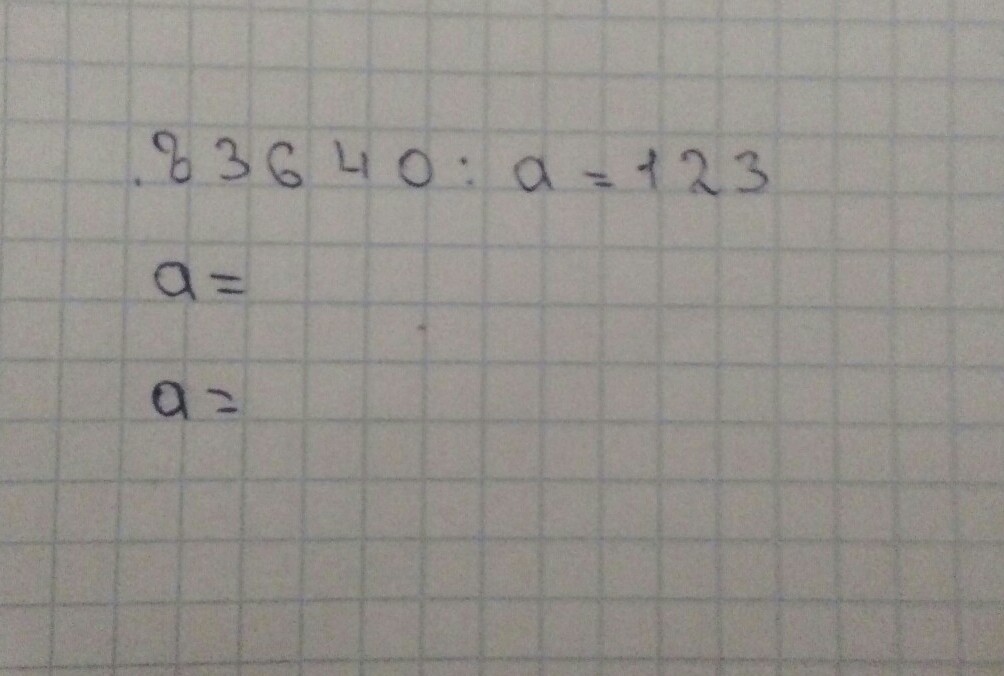 83640 : a = 123
a =
a =